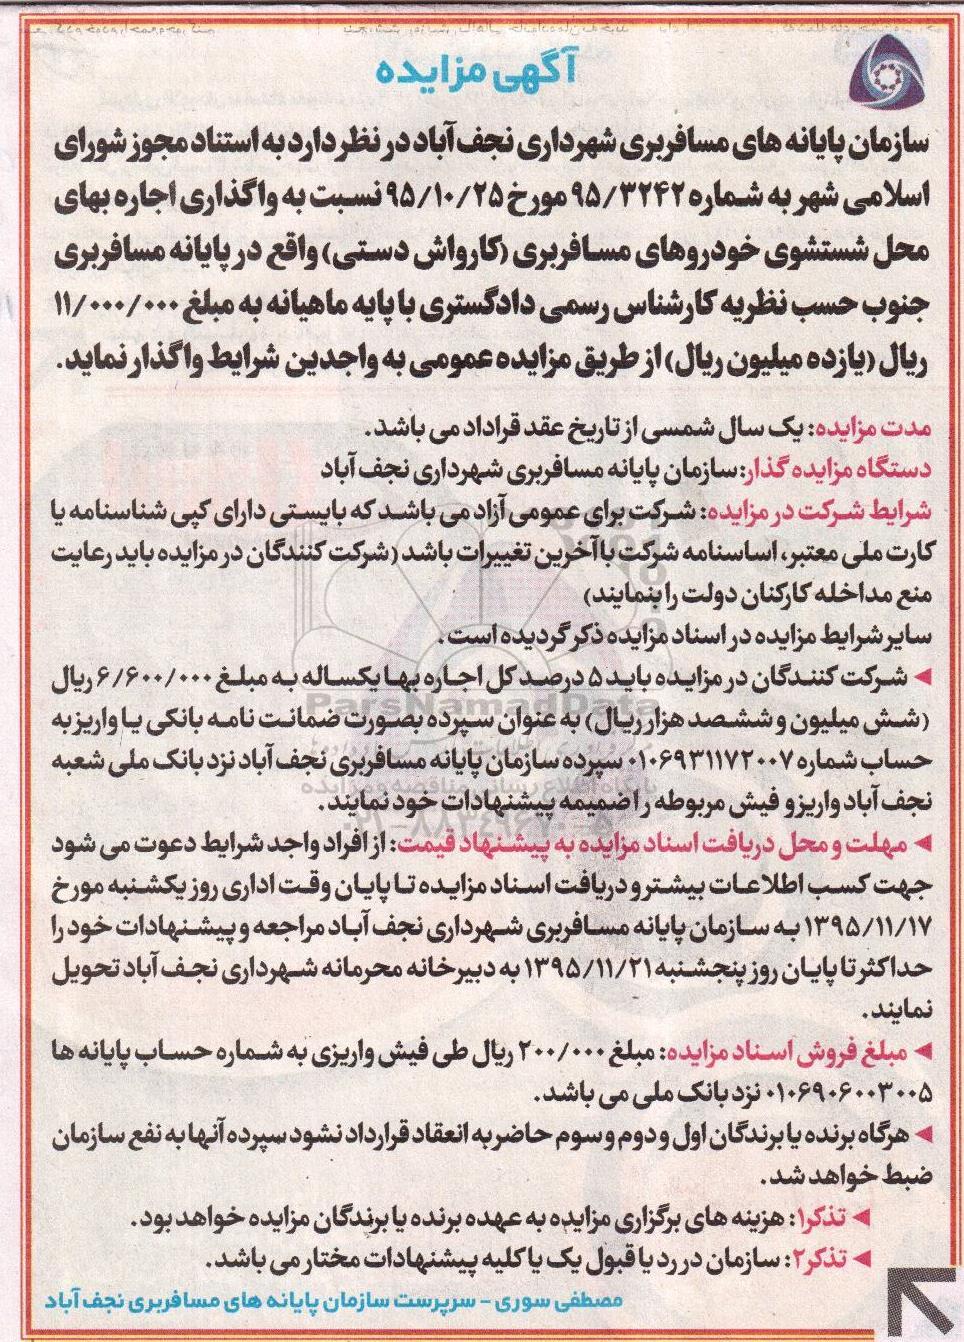 آگهی مزایده
سازمان پایانه های مسافربری شهرداری نجف آباد در نظر دارد به استناد مجوز شورای
اسلامی شهر به شماره ۹۵/۳۲۴۲ مورخ ۹۵/۱۰/۲۵ نسبت به واگذاری اجاره بهای
محل شستشوی خودروهای مسافربری (کارواش دستی) واقع در پایانه مسافربری
جنوب حسب نظریه کارشناس رسمی دادگستری با پایه ماهیانه به مبلغ ۱۱/۰۰۰/۰۰۰
ریال (یازده میلیون ریال) از طریق مزایده عمومی به واجدین شرایط واگذار نماید.
مدت مزایده: یک سال شمسی از تاریخ عقد قراداد می باشد.
دستگاه مزایده گذار: سازمان پایانه مسافربری شهرداری نجف آباد
شرایط شرکت در مزایده: شرکت برای عمومی آزاد می باشد که بایستی دارای کپی شناسنامه یا
کارت ملی معتبر، اساسنامه شرکت با آخرین تغییرات باشد (شرکت کنندگان در مزایده باید رعایت
منع مداخله کارکنان دولت را بنمایند)
سایر شرایط مزایده در اسناد مزایده ذکر گردیده است.
◄ شرکت کنندگان در مزایده باید ۵ درصد کل اجاره بها یکساله به مبلغ ۶/۶۰۰/۰۰۰ ریال
(شش میلیون و ششصد هزار ریال) به عنوان سپرده بصورت ضمانت نامه بانکی یا واریز به
حساب شماره ۰۱۰۶۹۳۱۱۷۲۰۰۷ سپرده سازمان پایانه مسافربری نجف آباد نزد بانک ملی شعبه
نجف آباد واریز و فیش مربوطه را ضمیمه پیشنهادات خود نمایند.
◄ مهلت و محل دریافت اسناد مزایده به پیشنهاد قیمت: از افراد واجد شرایط دعوت می شود
جهت کسب اطلاعات بیشتر و دریافت اسناد مزایده تا پایان وقت اداری روز یکشنبه مورخ
۱۳۹۵/۱۱/۱۷ به سازمان پایانه مسافربری شهرداری نجف آباد مراجعه و پیشنهادات خود را
حداکثر تا پایان روز پنجشنبه ۱۳۹۵/۱۱/۲۱ به دبیرخانه محرمانه شهرداری نجف آباد تحویل
نمایند.
◄ مبلغ فروش اسناد مزایده: مبلغ ۲۰۰/۰۰۰ ریال طی فیش واریزی به شماره حساب پایانه ها
۰۱۰۶۹۰۶۰۰۳۰۰۵ نزد بانک ملی می باشد.
◄ هرگاه برنده یا برندگان اول و دوم و سوم حاضر به انعقاد قرارداد نشود سپرده آنها به نفع سازمان
ضبط خواهد شد.
◄ تذکر۱: هزینه های برگزاری مزایده به عهده برنده یا برندگان مزایده خواهد بود.
◄ تذکر۲: سازمان در رد یا قبول یک یا کلیه پیشنهادات مختار می باشد.
مصطفی سوری - سرپرست سازمان پایانه های مسافربری نجف آباد
ParsNamadData
پایگاه اطلاع رسانی مناقصه و مزایده